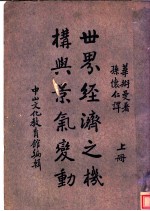 華爾曼著
孫懷仁譯
上冊
世界經濟之機
構與景氣變動
中山文化教育館編輯